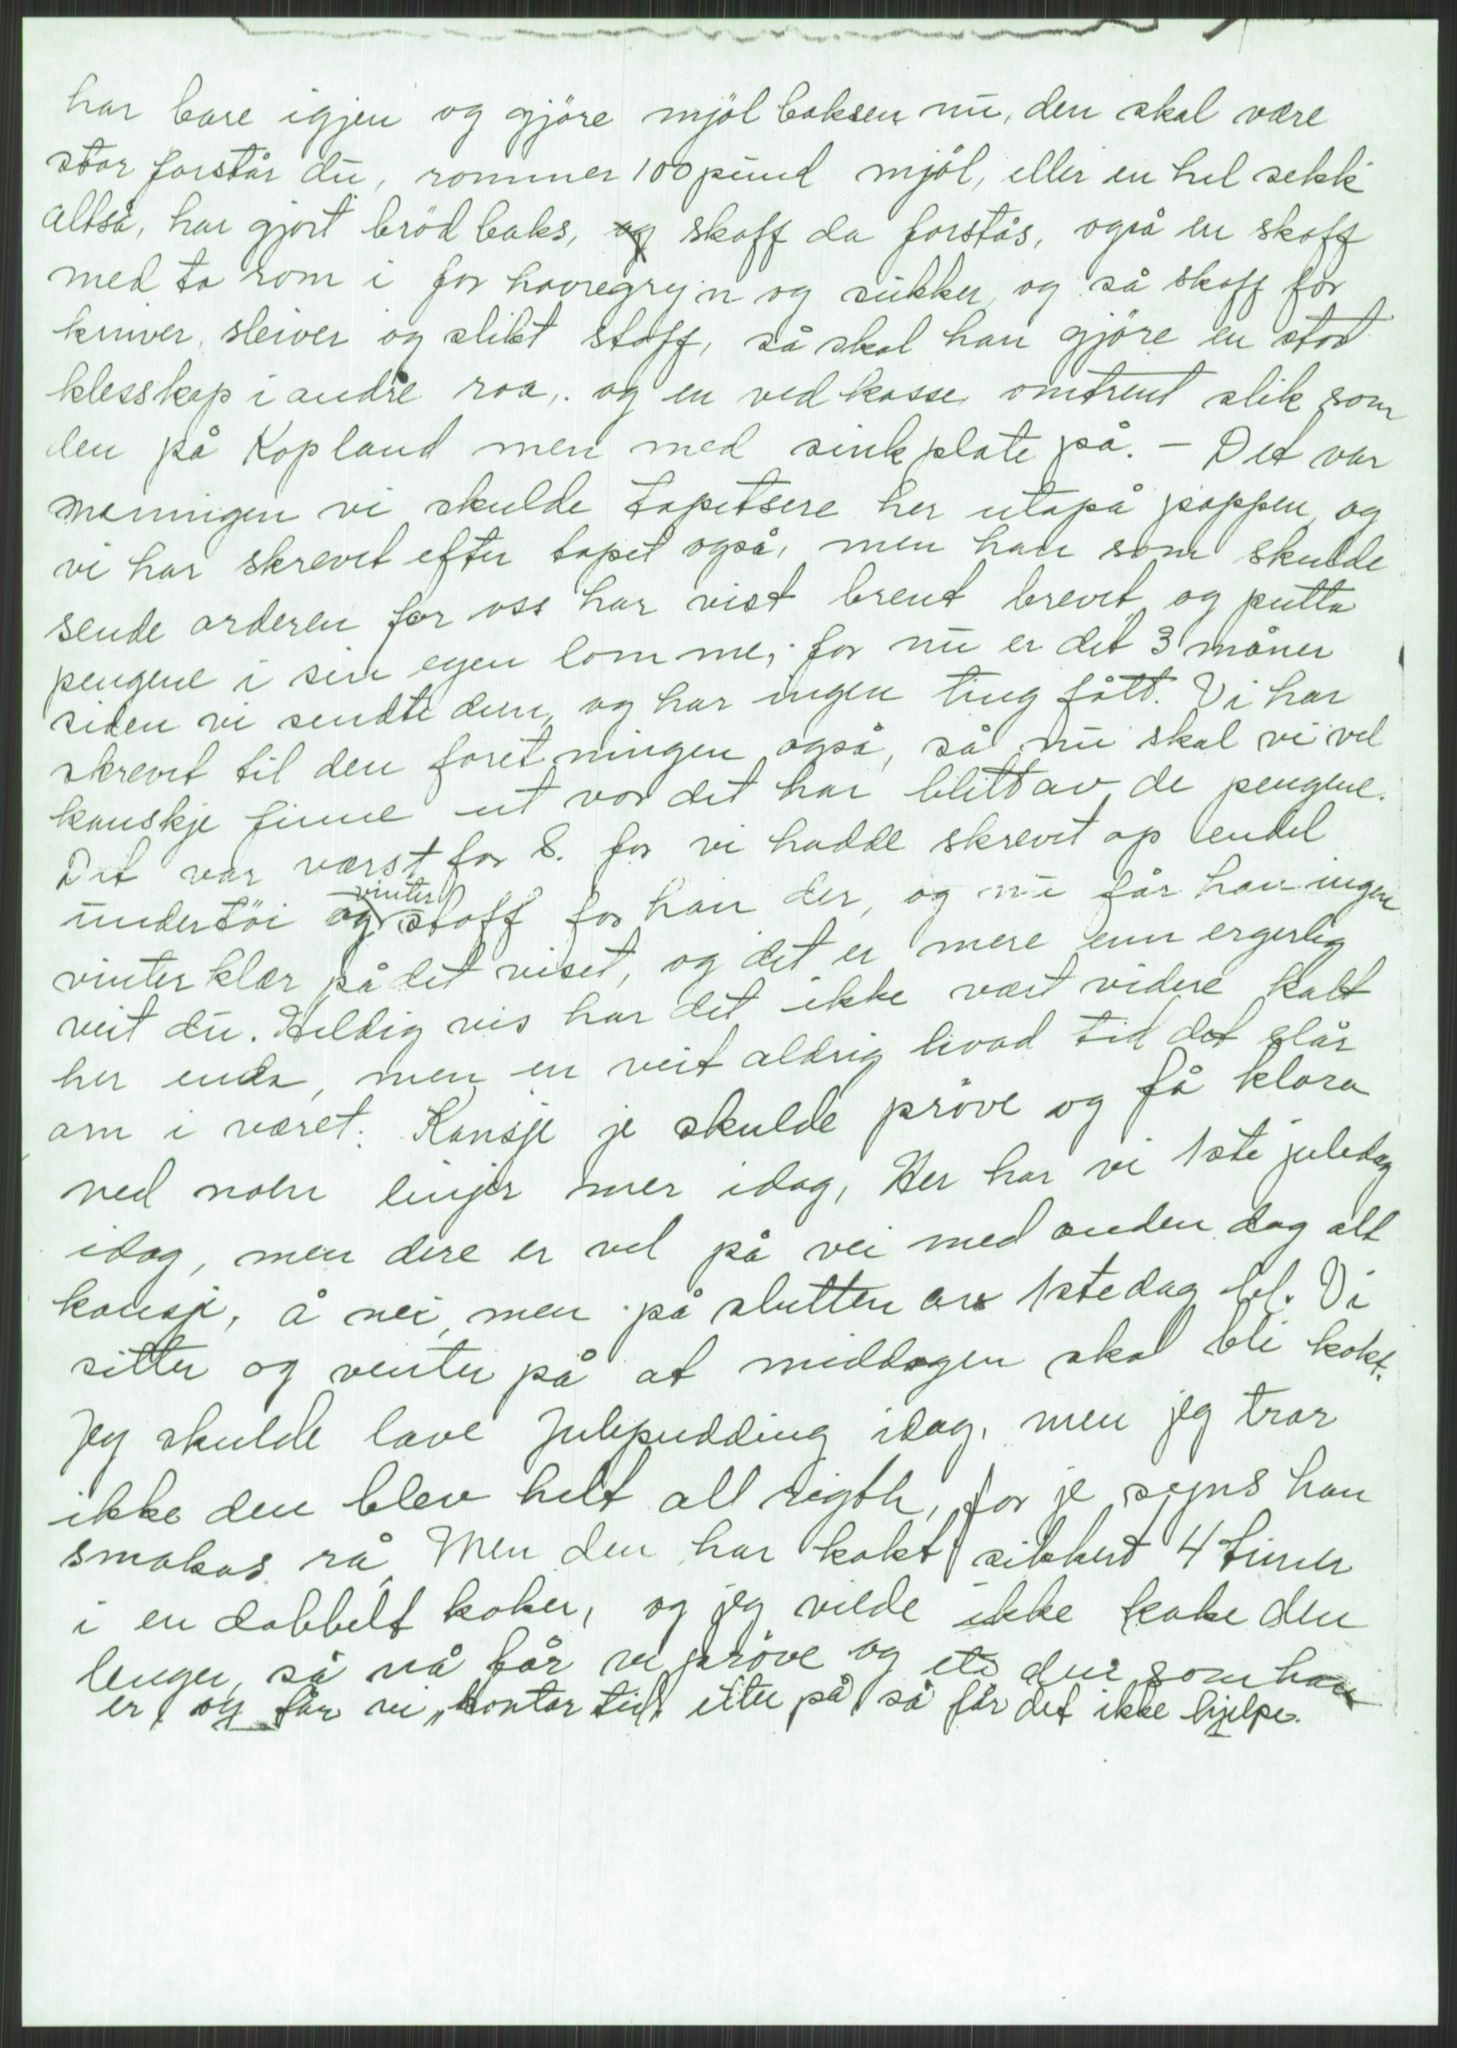 har bare igjen og gjöre mjöl baksen nu, den skal være
stor forstår du, rommer 100 pund mjöl, eller en hel sekk
altså, har gjort brödbaks, og skoff da forstås, også en skoff
med to rom i for havregryn og sukker, og så skoff for
kniver, sleiver og slikt stoff, så skal han gjöre en stor
klesskap i andre roa, og en vedkasse omtrent slik som
den på Kopland men med sinkplate på. – Det var
meningen vi skulde tapetsere her utapå pappen, og
vi har skrevet efter tapet også, men han som skulde
sende orderen for oss har vist brent brevet og putta
pengene i sin egen lomme, for nu er det 3 måner
siden vi sendte dem, og har ingen ting fått. Vi har
skrevet til den foretningen også, så nu skal vi vel
kanskje finne ut vor det har blitt av de pengene.
Det var værst for S. for vi hadde skrevet op endel
undertöi og vinter stoff for han der, og nu får han ingen
vinterklær på det viset, og det er mere enn ergerlig
veit du. Heldig vis har det ikke vært videre kalt
her enda, men en veit aldrig hvad tid det slår
om i været. Kansje je skulde pröve og få klora
ned noen linjer mer idag, Her har vi 1ste juledag
idag, men dere er vel på vei med anden dag alt
kansje, å nei, men på slutten av 1stedag vel. Vi
sitter og venter på at middagen skal bli kokt.
Jeg skulde lave Julepudding idag, men jeg tror
ikke den blev helt all rigth, for je syns han
smakas rå, Men den har kokt sikkert 4 timer
i en dobbelt koker, og jeg vilde ikke koke den
lenger, så nå får vi pröve og ete den som han
er, og får vi "hontor tid" etter på så får det ikke hjelpe.